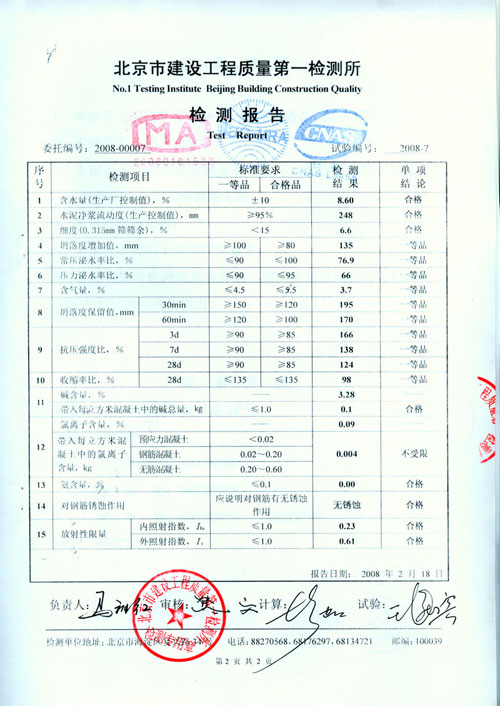 北京市建设工程质量第一检测所
No.1 Testing Institute Beijing Building Construction Quality
检测报告
Test Report
MA
CNAS
委托编号：2008-00007 试验编号： 2008-7
序号 检测项目 标准要求 检测结果 单项结论
一等品 合格品
1 含水量(生产厂控制值)，% ±10 8.60 合格
2 水泥净浆流动度(生产控制值)，mm ≥95% 248 合格
3 细度(0.315mm 筛筛余)，% <15 6.6 合格
4 坍落度增加值，mm ≥100 ≥80 135 一等品
5 常压泌水率比，% ≤90 ≤100 76.9 一等品
6 压力泌水率比，% ≤90 ≤95 66 一等品
7 含气量，% ≤4.5 ≤5.5 3.7 一等品
8 坍落度保留值，mm 30min ≥150 ≥120 195 一等品
60min ≥120 ≥100 170 一等品
9 抗压强度比，% 3d ≥90 ≥85 166 一等品
7d ≥90 ≥85 138 一等品
28d ≥90 ≥85 124 一等品
10 收缩率比，% 28d ≤135 ≤135 98 一等品
11 碱含量，% —— 3.28
带入每立方米混凝土中的碱总量，kg ≤1.0 0.1 合格
氯离子含量，% —— 0.09
12 带入每立方米混凝土中的氯离子含量，kg 预应力混凝土 <0.02 0.004 不受限
钢筋混凝土 0.02~0.20
无筋混凝土 0.20~0.60
13 氨含量，% ≤0.1 0.00 合格
14 对钢筋锈蚀作用 应说明对钢筋有无锈蚀作用 无锈蚀 合格
15 放射性限量 内照射指数，I ≤1.0 0.23 合格
外照射指数，I ≤1.0 0.61 合格
报告日期： 2008 年 2 月 18 日
负责人： 审核： 计算： 试验：
北京市建设工程质量第一检测所
检测单位地址：北京市海淀区 电话：88270568,68176297,68134721 邮编：100039
第 2 页 共 2 页